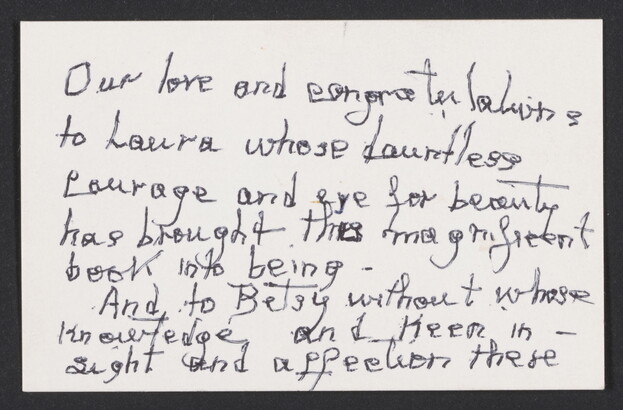 Our love and congratulations
to Laura whose dauntless
courage and eye for beauty
has brought this magnificent
book into being -
And, to Betsy without whose
knowledge and keen in -
sight and affection these